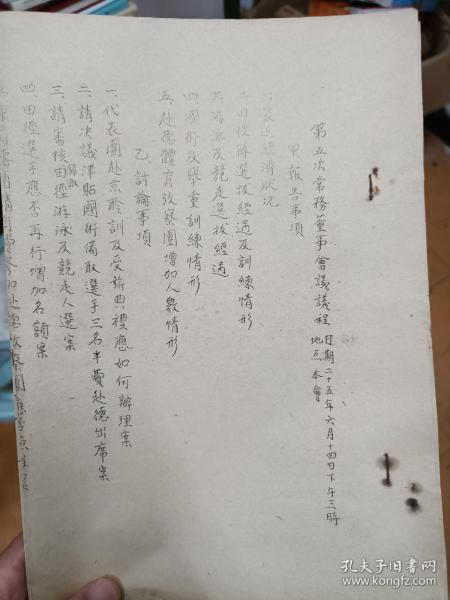 第五次常務董事會議議程 日期 二十五年六月十四日下午三時
地点 本會
甲、報告事項
一、最近經濟狀況
二、田徑隊選拔經過及訓練情形
三、游泳及競走選拔經過
四、國術及舉重訓練情形
五、赴德體育攷察團增加人數情形
乙、討論事項
一、代表團赴京聆訓及受新典禮應如何辦理案
二、請决議津貼國術備取選手三名半費赴德出席案
三、請審核田徑游泳及競走人選案
錄取
四、田徑選手應否再行增加名額案
加赴德攷察團應
孔夫子旧书网
www.kongfz.com